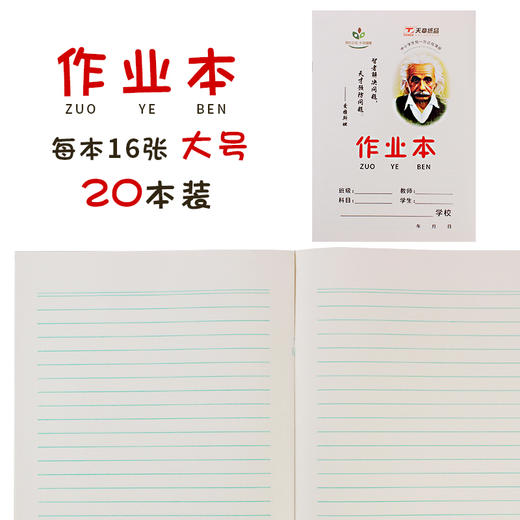 作业本
ZUO YE BEN
每本16张 大号
20本装
天章纸品
智者解决问题,
天才预防问题。
——爱因斯坦
作业本
ZUO YE BEN
班级: 教师:
科目: 学生:
学校
年 月 日